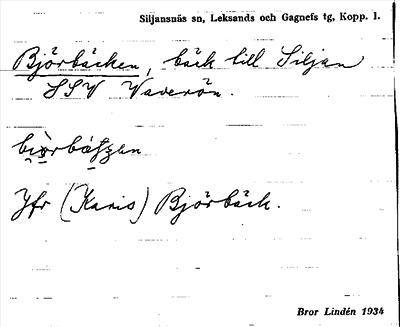 Siljansnäs sn, Leksands och Gagnefs tg, Kopp. l.
Björbäcken, bäck till Siljan
SSV Vaverön.
Jfr (Karis) Björbäck.
Bror Lindén 1934